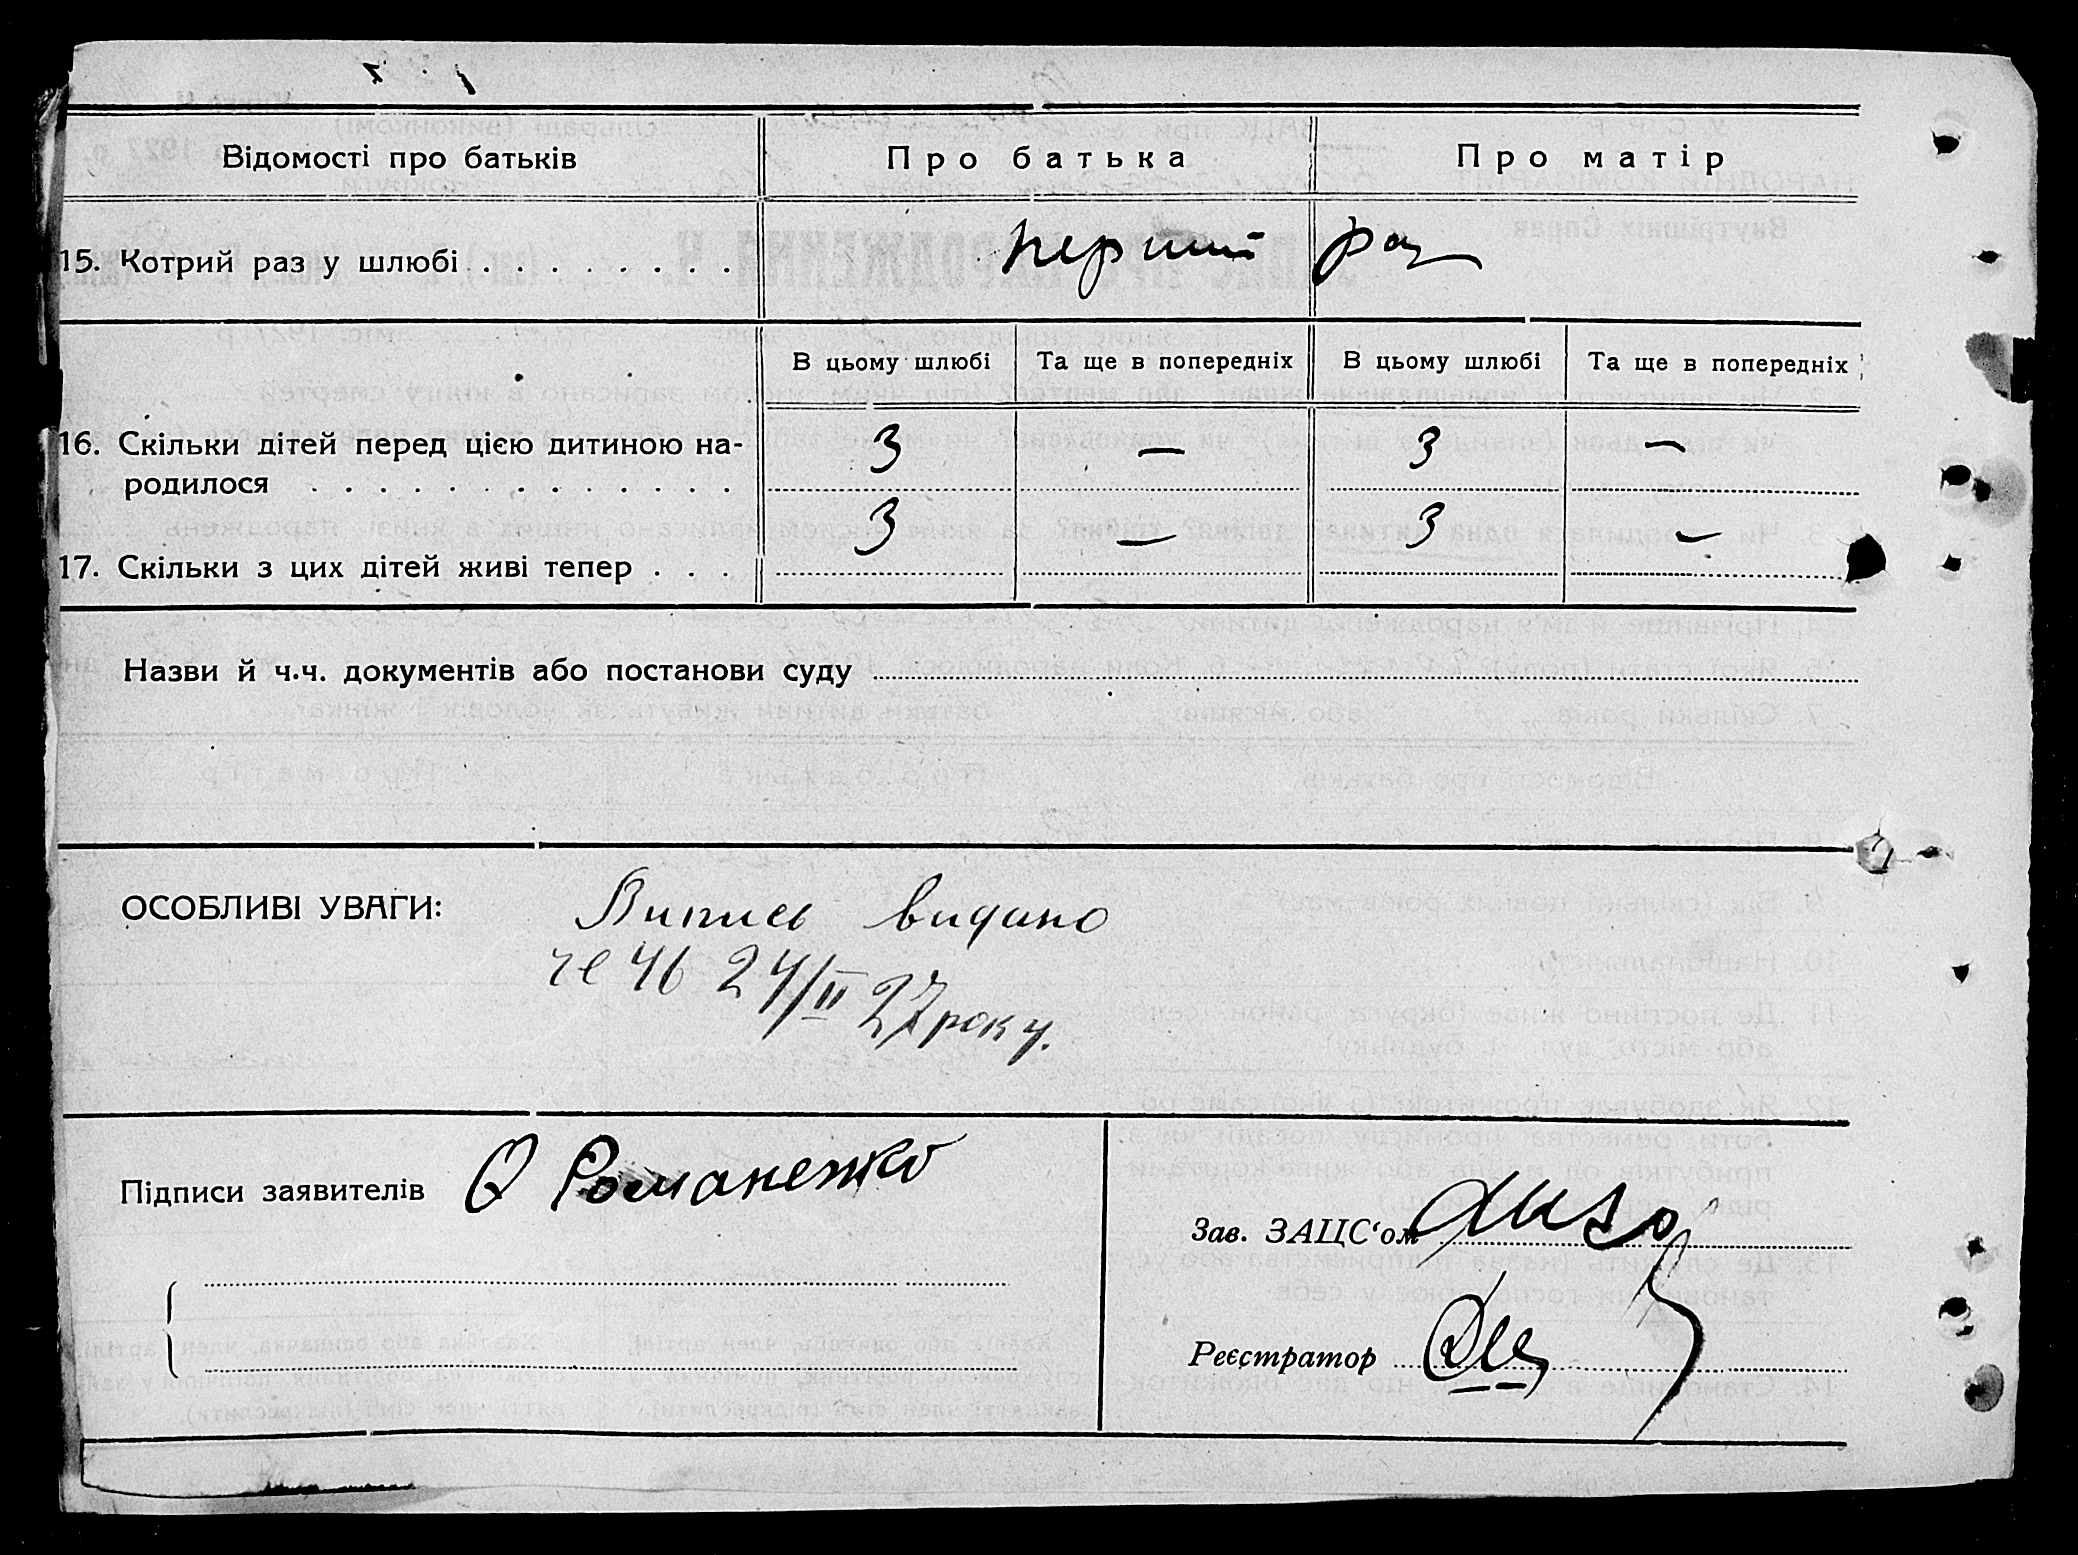 Відомості про батьків Про батька Про матір
15. Котрий раз у шлюбі . . . . . . . . перший раз
В цьому шлюбі Та ще в попередніх В цьому шлюбі Та ще в попередніх
16. Скільки дітей перед цією дитиною на-
родилося . . . . . . . . . . . . . 3 — 3 —
17. Скільки з цих дітей живі тепер . . . 3 — 3 —
Назви й ч.ч. документів або постанови суду
ОСОБЛИВІ УВАГИ: Випись видано
46 24/II 27 року.
Підписи заявителів О Романенко
Зав. ЗАЦС‘ом
Реєстратор